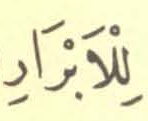 لِلْاَبْرَارِ